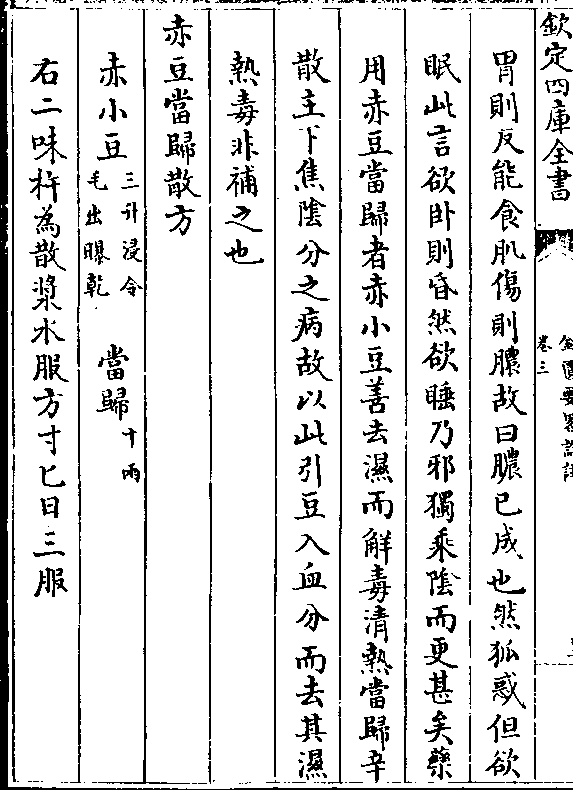 欽定四庫全書
卷三
胃則反能食肌傷則膿故曰膿已成也然狐惑但欲
眠此言欲卧則昏然欲睡乃邪獨乘陰而更甚矣藥
用赤豆當歸者赤小豆善去濕而解毒清熱當歸辛
散主下焦陰分之病故以此引豆入血分而去其濕
熱毒非補之也
赤豆當歸散方
赤小豆三升浸令毛出曝乾 當歸十兩
右二味杵為散漿水服方寸匕日三服